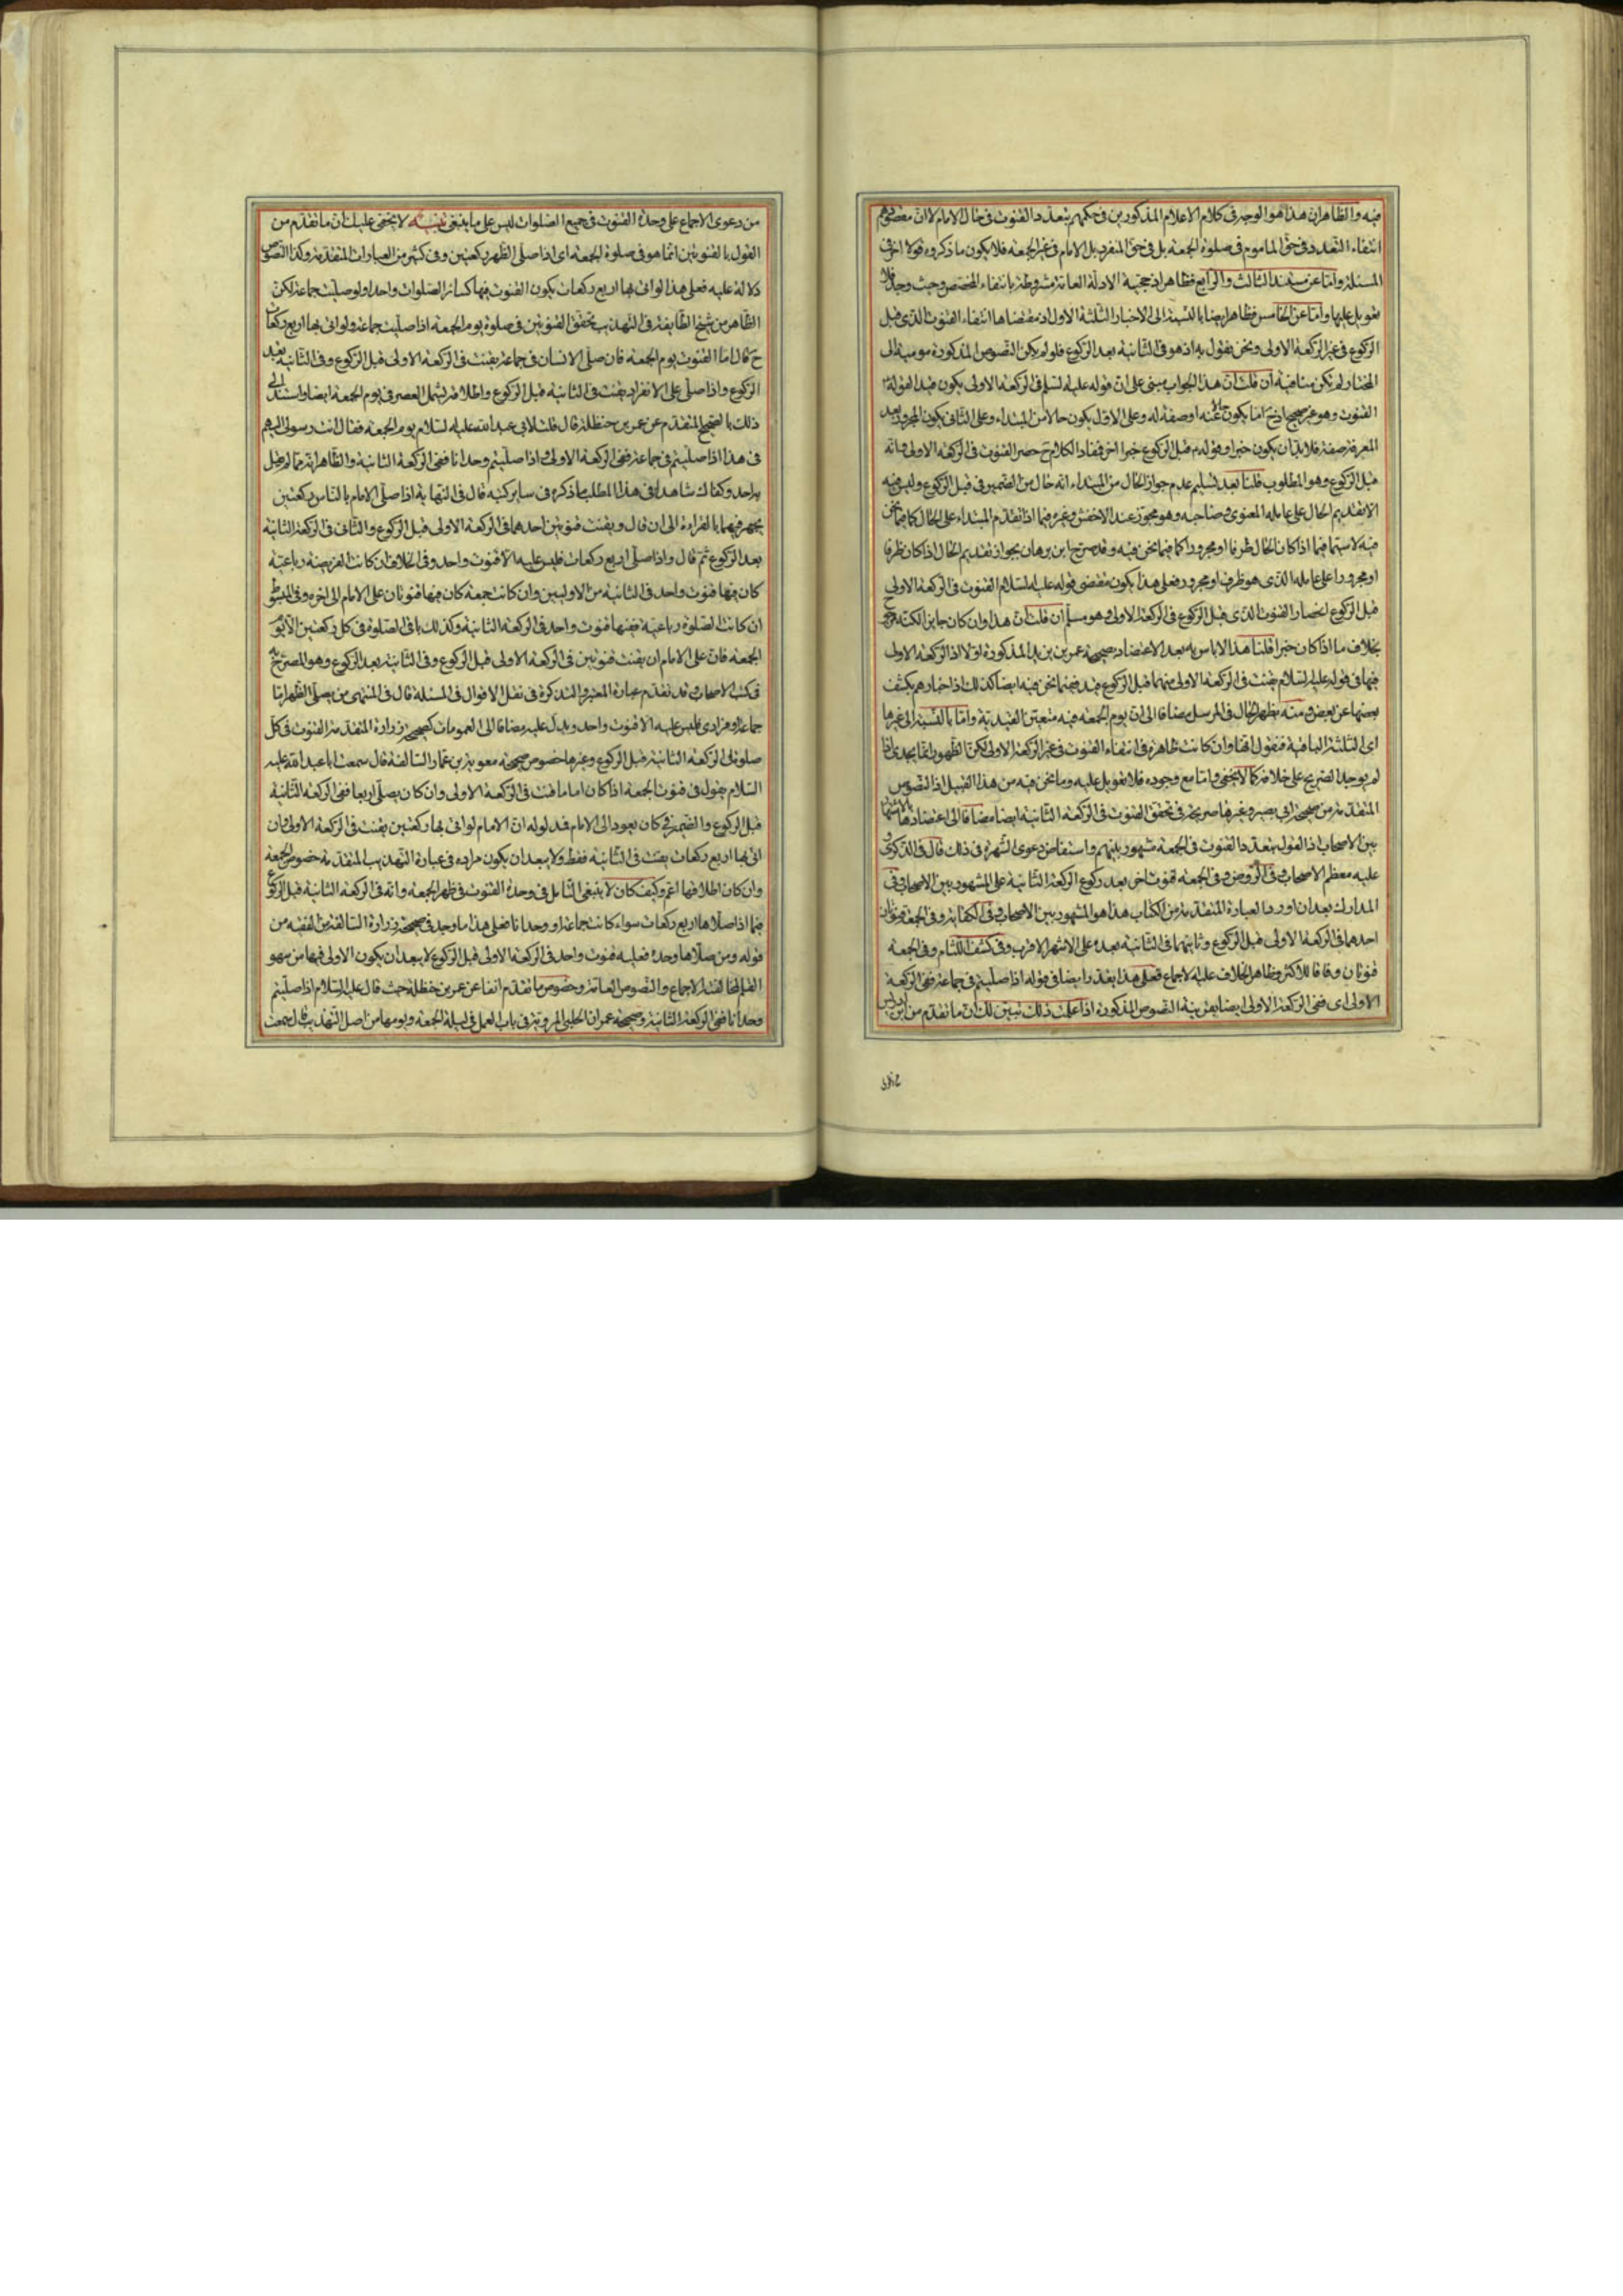 فيه والظاهر ان هذا هو الوجه في كلام الاعلام المذكورين في حكمهم بتعدد القنوت في حال الامام لا ان مقتضاهم
انتفاء التعدد في حق الماموم في صلوة الجمعة بل في حق المنفرد بل الامام في غير الجمعة فلا يكون ما ذكروه قولا اخر في
المسئلة واما عن مستند الثالث والرابع فظاهر اذ حجية الادلة العامة مشروطة بانتفاء المخصص وحيث وجد فلا
تعويل عليها واما عن الخامس فظاهر ايضا بالنسبة الى الاخبار الثلثة الاول اذ مقتضاها انتفاء القنوت الذي قبل
الركوع في غير الركعة الاولى ونحن نقول به اذ هو في الثانية بعد الركوع فلو لم يكن النصوص المذكورة مومية الى
المختار لم تكن منافية ان قلت ان هذا الجواب مبني على ان قوله عليه السلم في الركعة الاولى يكون قيدا لقوله
القنوت وهو غير صحيح اذ ح اما يكون حالا عنه او صفة له وعلى الاول يكون حالا من المبتداء وعلى الثاني يكون المجرور بعد
المعرفة صفة فلا بد ان يكون خبرا وقوله قبل الركوع خبرا اخر فمفاد الكلام ح حصر القنوت في الركعة الاولى وانه
قبل الركوع وهو المطلوب قلنا بعد تسليم عدم جواز الحال من المبتداء انه حال من الضمير في قبل الركوع وليس فيه
الا تقديم الحال على عامله المعنوي وصاحبه وهو مجوز عند الاخفش وغيره فيما اذا تقدم المبتداء على الحال كما فيما نحن
فيه لا سيما فيما اذا كان الحال ظرفا او مجرورا كما فيما نحن فيه وقد صرح ابن برهان بجواز تقديم الحال اذا كان ظرفا
او مجرورا على عامله الذي هو ظرف او مجرور فعلى هذا يكون مقتضى قوله عليه السلام القنوت في الركعة الاولى
قبل الركوع انحصار القنوت الذي قبل الركوع في الركعة الاولى وهو مسلم ان قلت ان هذا وان كان جايزا لكنه
بخلاف ما اذا كان خبرا قلنا هذا لا باس به بعد الاعتضاد بصحيحة عمر بن يزيد المذكورة اولا اذ الركعة الاولى
فيها في قوله عليه السلام يقنت في الركعة الاولى منهما قبل الركوع قيد فيما نحن فيه ايضا كذلك اذ اخبارهم يكشف
بعضها عن بعض ومنه يظهر الحال في المرسل مضافا الى ان يوم الجمعة فيه متعين القيدية واما بالنسبة الى غيرها
اي الثلثة الباقية فنقول انها وان كانت ظاهرة في انتفاء القنوت في غير الركعة الاولى لكن الظهور انما يجدي اذا
لم يوجد الصريح على خلافه كما لا يخفى واما مع وجوده فلا تعويل عليه وما نحن فيه من هذا القبيل اذ النصوص
المتقدمة من صحيحة ابي بصير وغيرها صريحة في تحقق القنوت في الركعة الثانية ايضا مضافا الى اعتضادها بالاشتهار
بين الاصحاب اذ القول بتعدد القنوت في الجمعة مشهور بينهم واستفاض دعوى الشهرة في ذلك قال في الذكرى
عليه معظم الاصحاب وفي الروض وفي الجمعة قنوت اخر بعد ركوع الركعة الثانية على المشهور بين الاصحاب وفي
المدارك بعد ان اورد العبارة المتقدمة من الكتاب هذا هو المشهور بين الاصحاب وفي الكفاية وفي الجمعة قنوتان
احدهما في الركعة الاولى قبل الركوع وثانيهما في الثانية بعده على الاشهر الاقرب وفي كشف اللثام وفي الجمعة
قنوتان وفاقا للاكثر وظاهر الخلاف عليه الاجماع فعلى هذا يقدر ايضا في قوله اذا صليتم في جماعة ففي الركعة
الاولى اي ففي الركعة الاولى ايضا بقرينة النصوص المذكورة اذا علمت ذلك تبين لك ان ما تقدم من ابن ادريس
من دعوى الاجماع على وحدة القنوت في جميع الصلوات ليس على ما ينبغي تنبيه لا يخفى عليك ان ما تقدم من
القول بالقنوتين انما هو في صلوة الجمعة اي اذا صلى الظهر ركعتين وفي كثير من العبارات المتقدمة وكذا النصوص
دلالة عليه فعلى هذا لو اتى بها اربع ركعات يكون القنوت فيها كسائر الصلوات واحدا ولو صليت جماعة لكن
الظاهر من شيخ الطايفة في التهذيب تحقق القنوتين في صلوة يوم الجمعة اذا صليت جماعة ولو اتى بها اربع ركعات
ح قال اما القنوت يوم الجمعة فان صلى الانسان في جماعة يقنت في الركعة الاولى قبل الركوع وفي الثانية بعد
الركوع واذا صلى على الانفراد يقنت في الثانية قبل الركوع واطلاقه يشمل العصر في يوم الجمعة ايضا واستند في
ذلك بالصحيح المتقدم عن عمر بن حنظلة قال قلت لابي عبد الله عليه السلام يوم الجمعة فقال انت رسولي اليهم
في هذا اذا صليتم في جماعة ففي الركعة الاولى واذا صليتم وحدانا ففي الركعة الثانية والظاهر انه مما لم يقل
به احد وكفاك شاهدا في هذا المطلب ما ذكره في ساير كتبه قال في النهاية اذا صلى الامام بالناس ركعتين
يجهر فيهما بالقراءة الى ان قال ويقنت قنوتين احدهما في الركعة الاولى قبل الركوع والثاني في الركعة الثانية
بعد الركوع ثم قال واذا صلى اربع ركعات فليس عليه الا قنوت واحد وفي الخلاف ان كانت الفريضة رباعية
كان فيها قنوت واحد في الثانية من الاوليين وان كانت جمعة كان فيها قنوتان على الامام الى اخره وفي المبسوط
ان كانت الصلوة رباعية ففيها قنوت واحد في الركعة الثانية وكذلك باقي الصلوة في كل ركعتين الا يوم
الجمعة فان على الامام ان يقنت قنوتين في الركعة الاولى قبل الركوع وفي الثانية بعد الركوع وهو المصرح به
في كتب الاصحاب وقد تقدم عبارة المعتبر والتذكرة في نقل الاقوال في المسئلة قال في المنتهى من يصلي الظهر اما
جماعة او فرادى فليس عليه الا قنوت واحد ويدل عليه مضافا الى العمومات كصحيحة زرارة المتقدمة القنوت في كل
صلوة في الركعة الثانية قبل الركوع وغيرها خصوص صحيحة معوية بن عمار السالفة قال سمعت ابا عبد الله عليه
السلام يقول في قنوت الجمعة اذا كان اماما قنت في الركعة الاولى وان كان يصلي اربعا ففي الركعة الثانية
قبل الركوع والضمير في كان يعود الى الامام فمدلوله ان الامام لو اتى بها ركعتين يقنت في الركعة الاولى وان
اتى بها اربع ركعات يقنت في الثانية فقط ولا يبعد ان يكون مراده في عبارة التهذيب المتقدمة خصوص الجمعة
وان كان اطلاقها اعم وكيف كان لا ينبغي التأمل في وحدة القنوت في ظهر الجمعة وانه في الركعة الثانية قبل الركوع
فيما اذا صلاها اربع ركعات سواء كانت جماعة او وحدانا فعلى هذا ما وجد في صحيحة زرارة السالفة من الفقيه من
قوله ومن صلاها وحده فعليه قنوت واحد في الركعة الاولى قبل الركوع لا يبعد ان يكون الاولى فيها من سهو
القلم لمخالفته الاجماع والنصوص العامة وخصوص ما تقدم انفا عن عمر بن حنظلة حيث قال عليه السلام اذا صليتم
وحدانا ففي الركعة الثانية وصحيحة عمران الحلبي المروية في باب العمل في ليلة الجمعة ويومها من اصل التهذيب قال سمعت